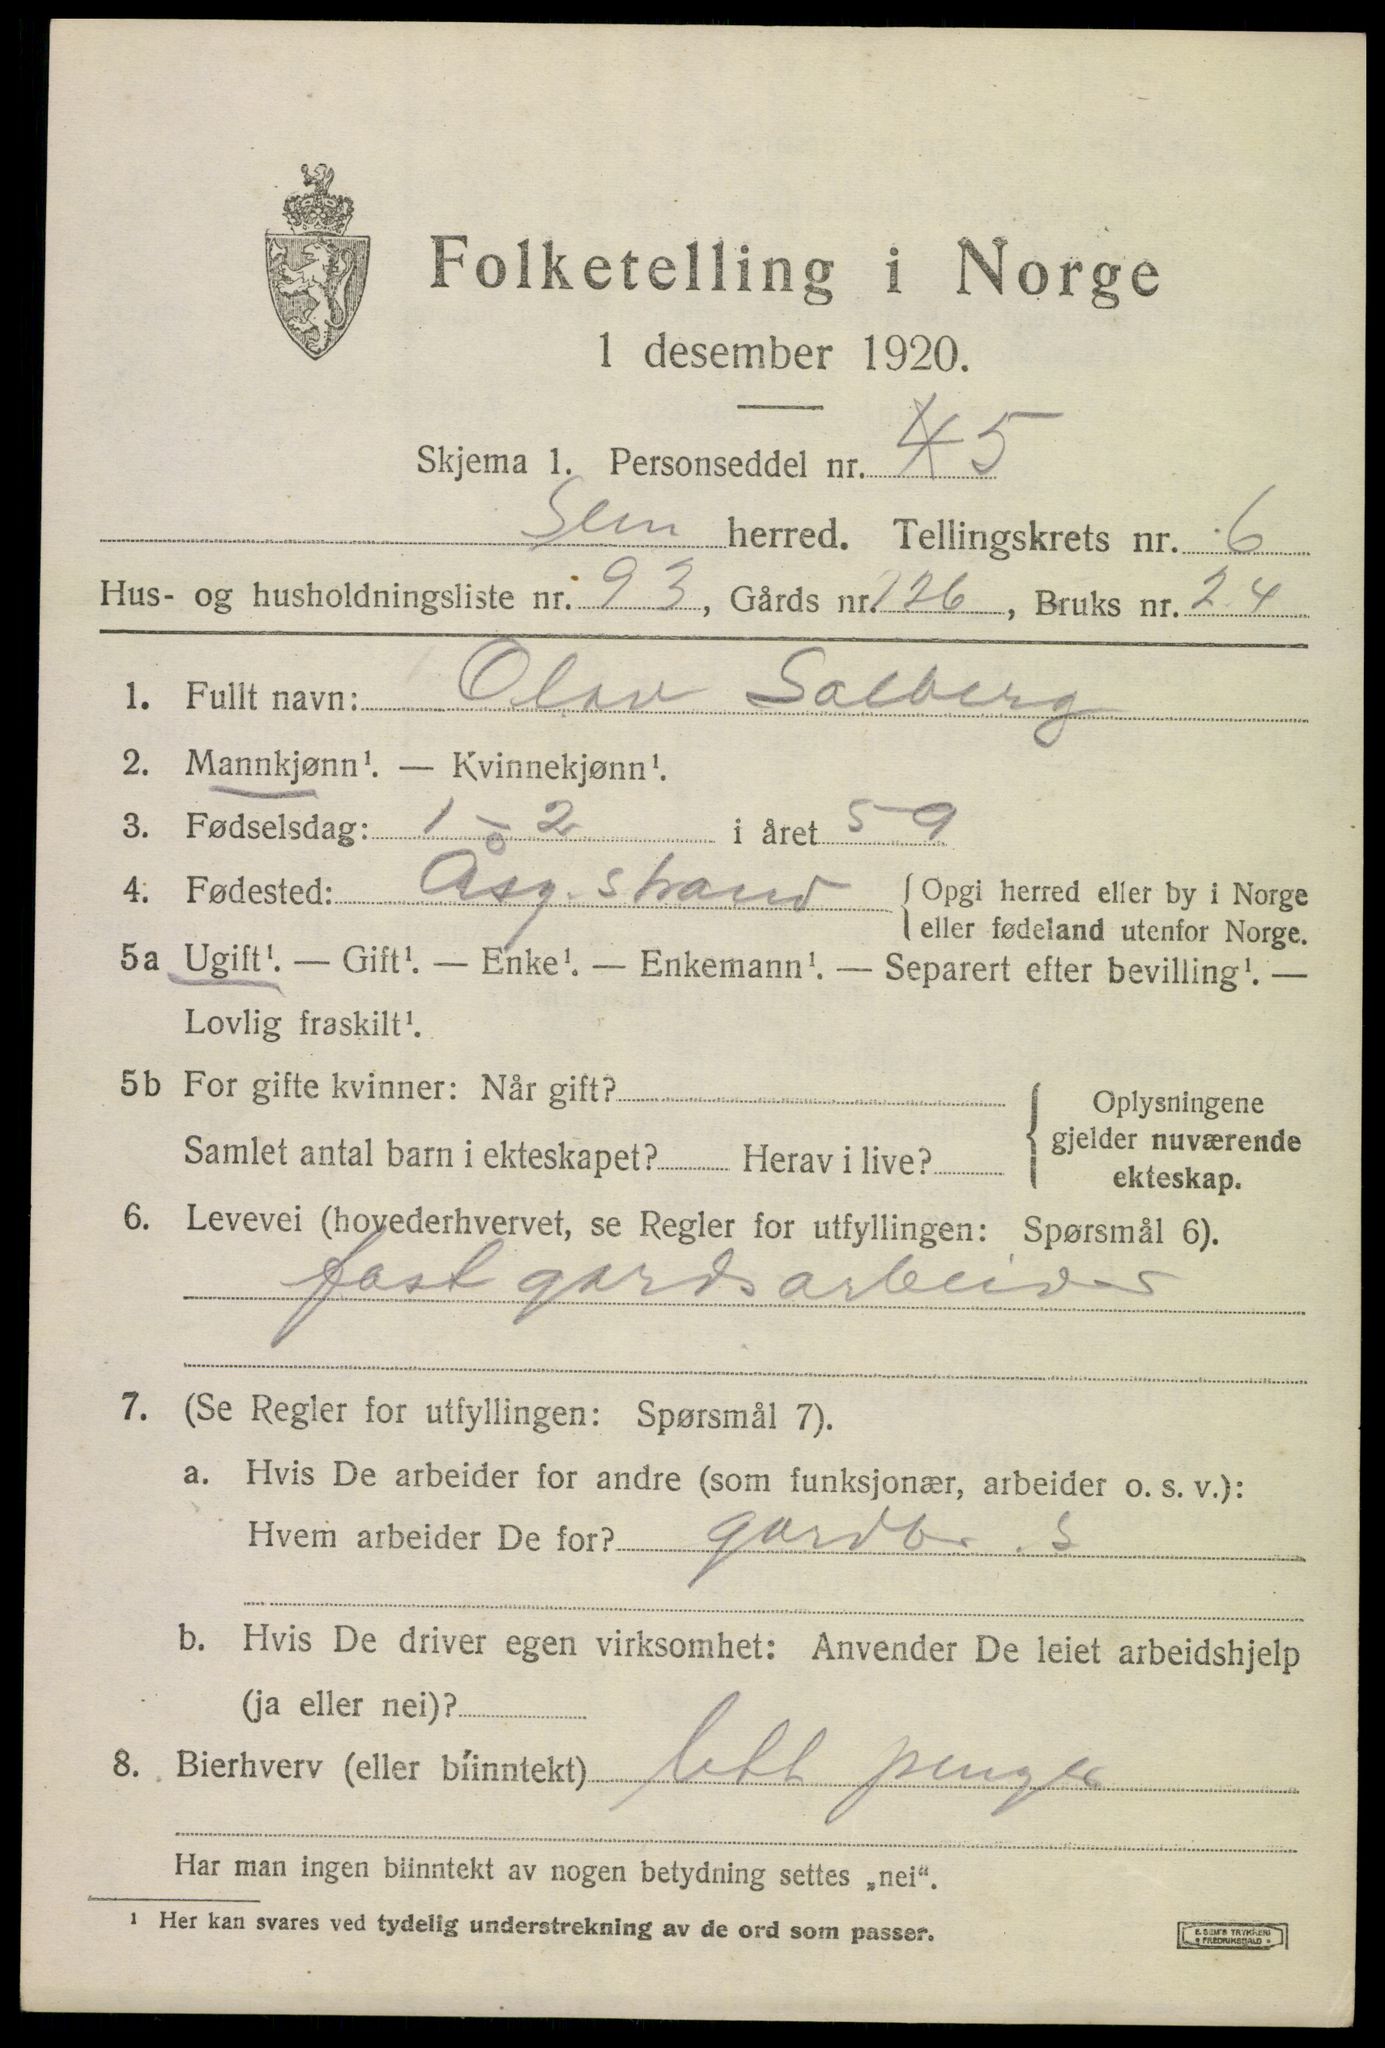 Folketelling i Norge
1 desember 1920.
Skjema 1. Personseddel nr. 4 5
Sem herred. Tellingskrets nr. 6
Hus- og husholdningsliste nr. 93, Gårds nr. 126, Bruks nr. 24
1. Fullt navn: Olav Solberg
2. Mannkjønn¹. — Kvinnekjønn¹.
3. Fødselsdag: 1 - 2 i året 59
4. Fødested: Åsg.strand { Opgi herred eller by i Norge
eller fødeland utenfor Norge.
5a Ugift¹. — Gift¹. — Enke¹. — Enkemann¹. — Separert efter bevilling¹. —
Lovlig fraskilt¹.
5b For gifte kvinner: Når gift?
Samlet antal barn i ekteskapet? Herav i live?
Oplysningene
gjelder nuværende
ekteskap.
6. Levevei (hovederhvervet, se Regler for utfyllingen: Spørsmål 6).
fast gardsarbeider
7. (Se Regler for utfyllingen: Spørsmål 7).
a. Hvis De arbeider for andre (som funksjonær, arbeider o. s. v.):
Hvem arbeider De for? gardbr. s
b. Hvis De driver egen virksomhet: Anvender De leiet arbeidshjelp
(ja eller nei)?
8. Bierhverv (eller biinntekt) litt penger
Har man ingen biinntekt av nogen betydning settes „nei“.
¹ Her kan svares ved tydelig understrekning av de ord som passer.
E. SEM'S TRYKKERI
FREDRIKSHALD